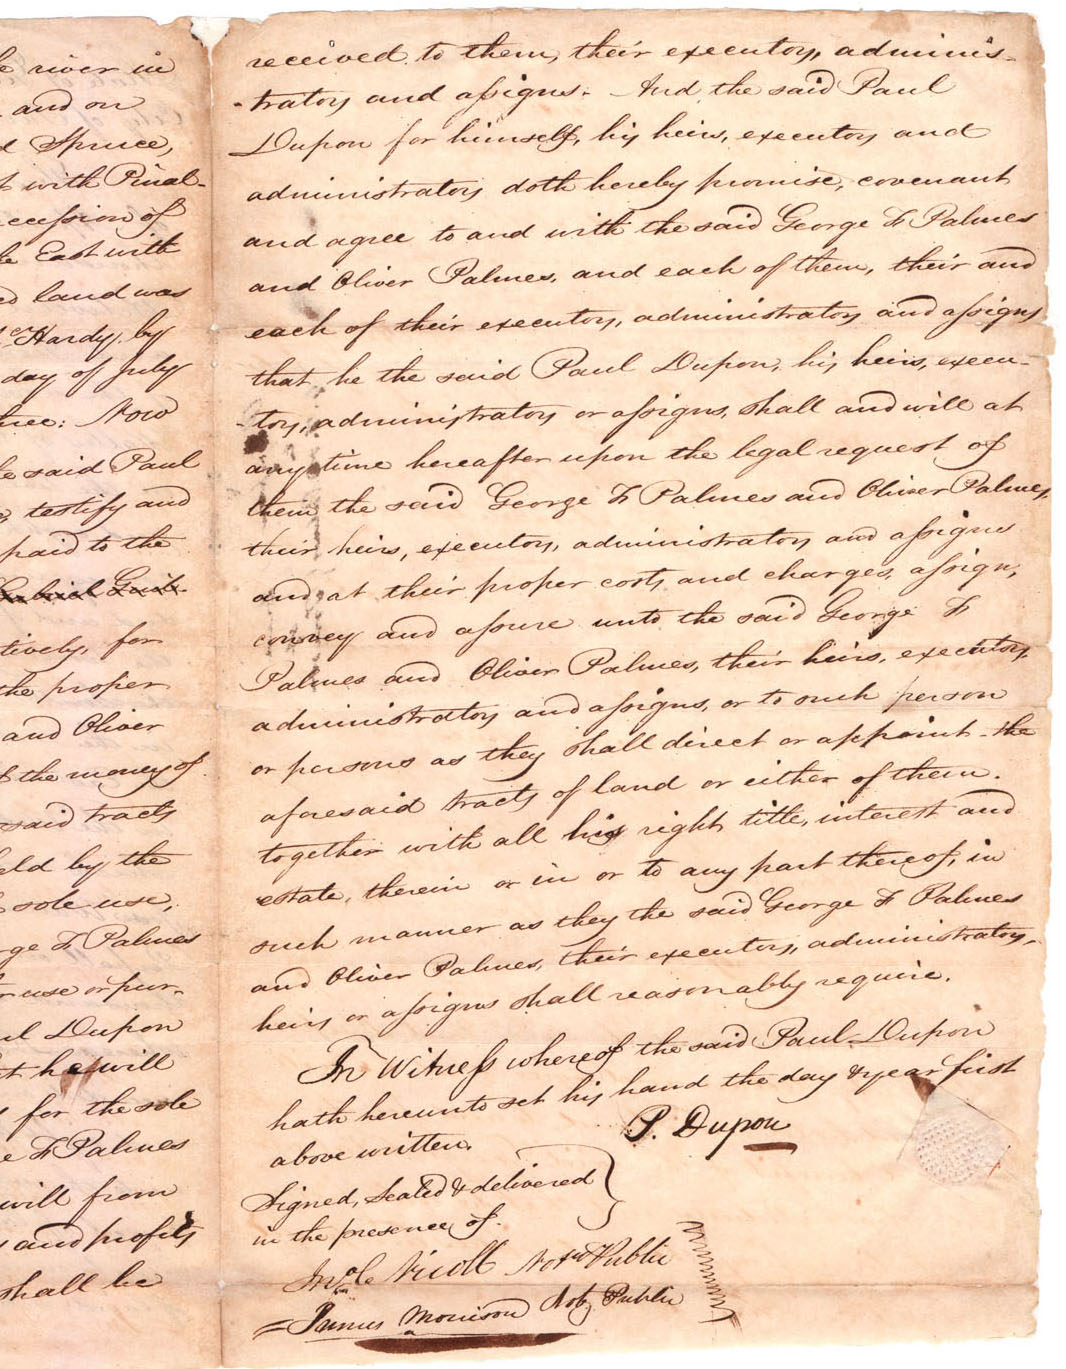 le river in
and on
d Spruce,
t with Pinal-
cession of
he East with
ed land was
Hardy, by
day of July
hree: Now
he said Paul
testify and
paid to the
tively, for
the proper
and Oliver
f the money of
said tracts
eld by the
sole use,
rge F Palmes
r use or pur-
ul Dupon
at he will
for the sole
e F Palmes
will from
and profits
shall be
received to them, their executors, adminis-
-trators and assigns. And the said Paul
Dupon for himself, his heirs, executors and
administrators doth hereby promise, covenant
and agree to and with the said George F Palmes
and Oliver Palmes, and each of them, their and
each of their executors, administrators and assigns
that he the said Paul Dupon, his heirs, execu-
-tors, administrators or assigns, shall and will at
any time hereafter upon the legal request of
them the said George F Palmes and Oliver Palmes,
their heirs, executors, administrators and assigns
and at their proper costs and charges, assign,
convey and assure unto the said George F
Palmes and Oliver Palmes, their heirs, executors,
administrators and assigns, or to such person
or persons as they shall direct or appoint the
aforesaid tracts of land or either of them.
together with all his right, title, interest and
estate, therein or in or to any part thereof, in
such manner as they the said George F Palmes
and Oliver Palmes, their executors, administrators,
heirs or assigns shall reasonably require.
In Witness whereof the said Paul Dupon
hath hereunto set his hand the day & year first
above written.
P. Dupon
Signed, Sealed & delivered
in the presence of.
Nicoll Not. Public
James Morrison Not Public